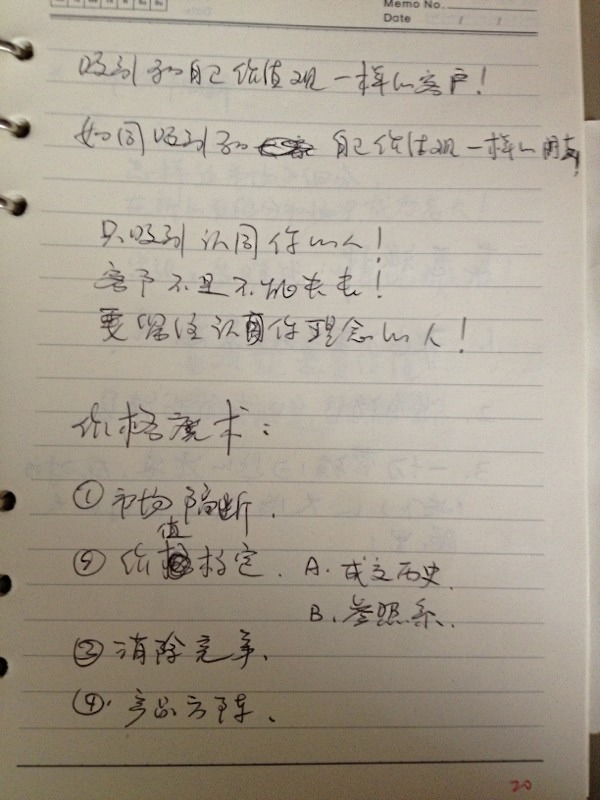 Memo No.
Date / /
吸引和自己价值观一样的客户!
如何吸引和自己价值观一样的朋友!
只吸引认同你的人!
客户不是不能失去!
要留住认同你理念的人!
价格魔术:
① 市场隔断.
② 价值标定. A. 成交历史.
B. 参照系.
③ 消除竞争.
④. 产品方阵.
20